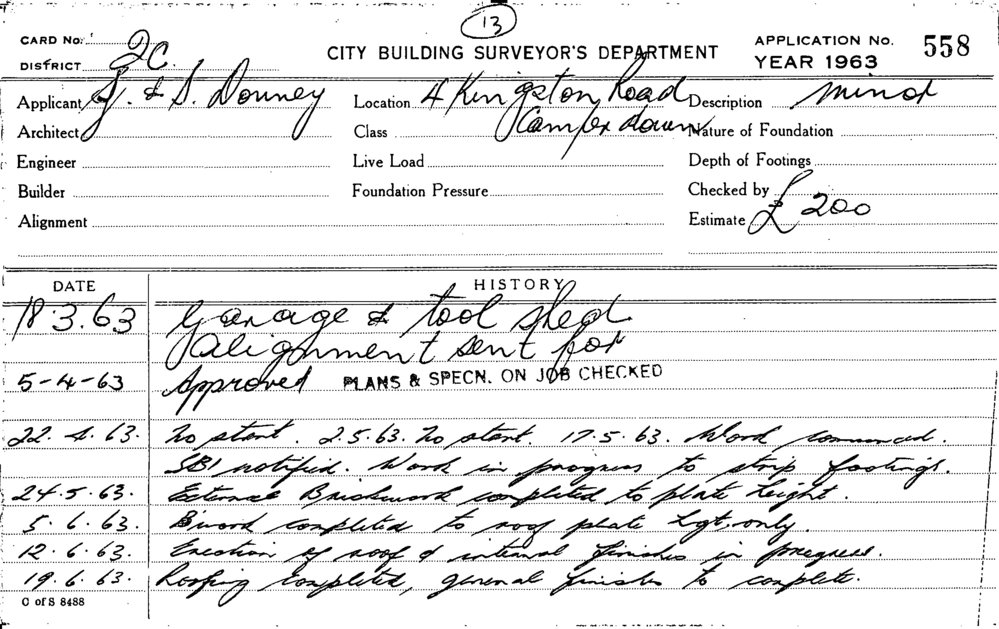 13
CARD No. CITY BUILDING SURVEYOR'S DEPARTMENT APPLICATION No. 558
DISTRICT 2C. YEAR 1963
Applicant J. & S. Downey Location 4 Kingston Road Description Minor
Architect Class Camperdown Nature of Foundation
Engineer Live Load Depth of Footings
Builder Foundation Pressure Checked by
Alignment Estimate £200
DATE HISTORY
18.3.63 Garage & tool shed
Alignment sent for
5-4-63 Approved PLANS & SPECN. ON JOB CHECKED
22.4.63. No start. 2.5.63. No start. 17.5.63. Work commenced.
SBI notified. Work in progress to strip footings.
24.5.63. External Brickwork completed to plate height.
5.6.63. B'work completed to roof plate hgt. only.
12.6.63. Erection of roof & internal finishes in progress.
19.6.63. Roofing completed, general finishes to complete.
C of S 8488